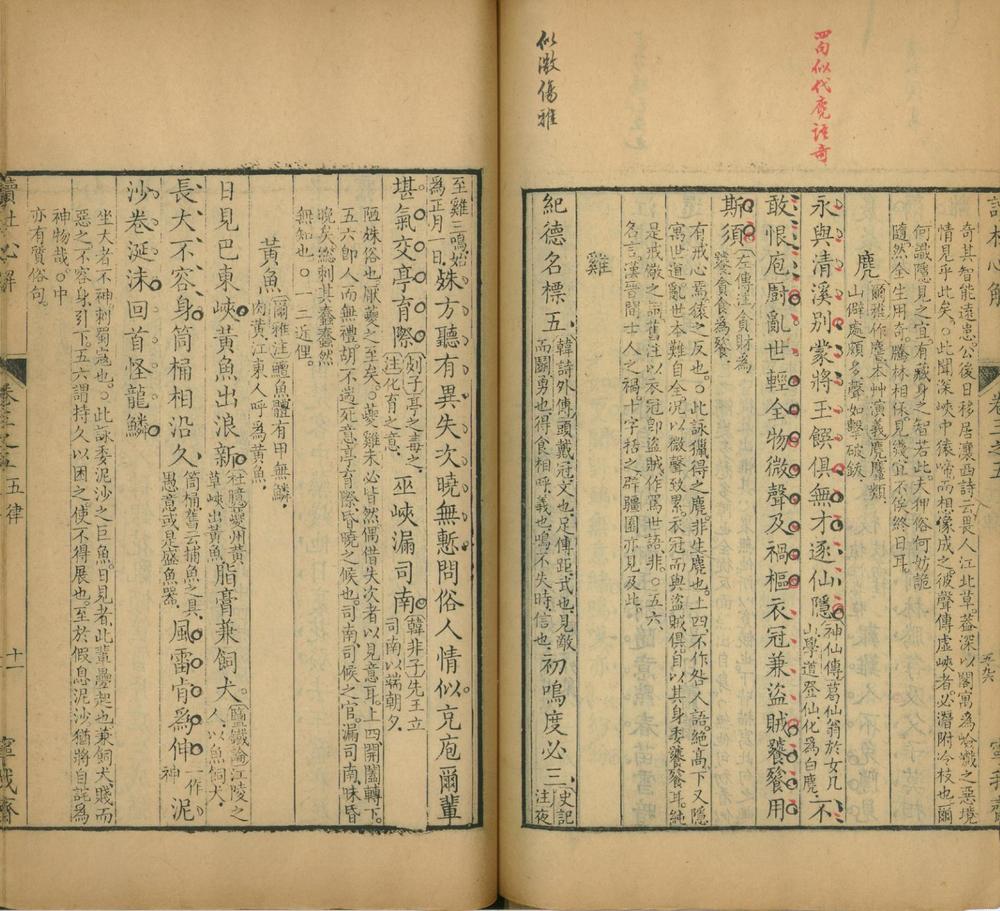 四句似代麂語奇
似激傷雅
奇其智能遠患公後日移居瀼西詩云畏人江北草蓋深以閣寓為險巇之惡境
情見乎此矣○此聞深峽中猿啼而想像成之彼聲傳虛峽者必潛附今枝也爾
何識隱見之宜有藏身之智若此夫狎俗何妨詭
隨然全生用奇騰林相保見幾宜不俟終日耳
麂
爾雅作麔本艸演義麂麞類
山僻處頗多聲如擊破鈸
永與清溪別蒙將玉饌俱無才逐仙隱神仙傳葛仙翁於女几山學道登仙化為白麂不
敢恨庖廚亂世輕全物微聲及禍樞衣冠兼盜賊饕餮用
斯須左傳注貪財為饕貪食為餮
有戒心焉猿之反也○此詠獵得之麂非生麂也上四不作咎人語絕高下又隱
寓世道亂世本難自全况以微聲致累衣冠而與盜賊俱自以其身委饕餮耳純
是戒儆之詞舊注以衣冠卽盜賊作罵世語非○五六
名言漢晉間士人之禍十字括之辟疆園亦見及此
雞
紀德名標五韓詩外傳頭戴冠文也足傅距武也見敵而鬬勇也得食相呼義也鳴不失時信也初鳴度必三史記注夜
至雞三鳴始為正月一日殊方聽有異失次曉無慙問俗人情似充庖爾輩
堪氣交亭育際劉子亭之毒之注化育之意巫峽漏司南韓非子先王立司南以端朝夕
陋殊俗也厭夔之至矣○夔雞未必皆然偶借失次者以見意耳上四開蓋轉下
五六卽人而無禮胡不遄死意亭育際昏曉之候也司南司候之官漏司南昧昏
曉矣總刺其蠢蠢然
無知也○一二近俚
黃魚
爾雅注鱣魚體有甲無鱗
肉黃江東人呼為黃魚
日見巴東峽黃魚出浪新杜臆夔州黃草峽出黃魚脂膏兼飼犬鹽鐵論江陵之人以魚飼犬
長大不容身筒桶相沿久筒桶舊云捕魚之具愚意或是盛魚器風雷肯為伸一作神泥
沙卷涎沫回首怪龍鱗
坐大者不神刺蜀寇也○此詠委泥沙之巨魚日見者此輩疊起也兼飼犬賤而
惡之不容身引下五六謂持久以困之使不得展也至於假息泥沙猶將自詫為
神物哉○中
亦有質俗句
讀杜心解
卷三之五
五律
十一
寧我齋